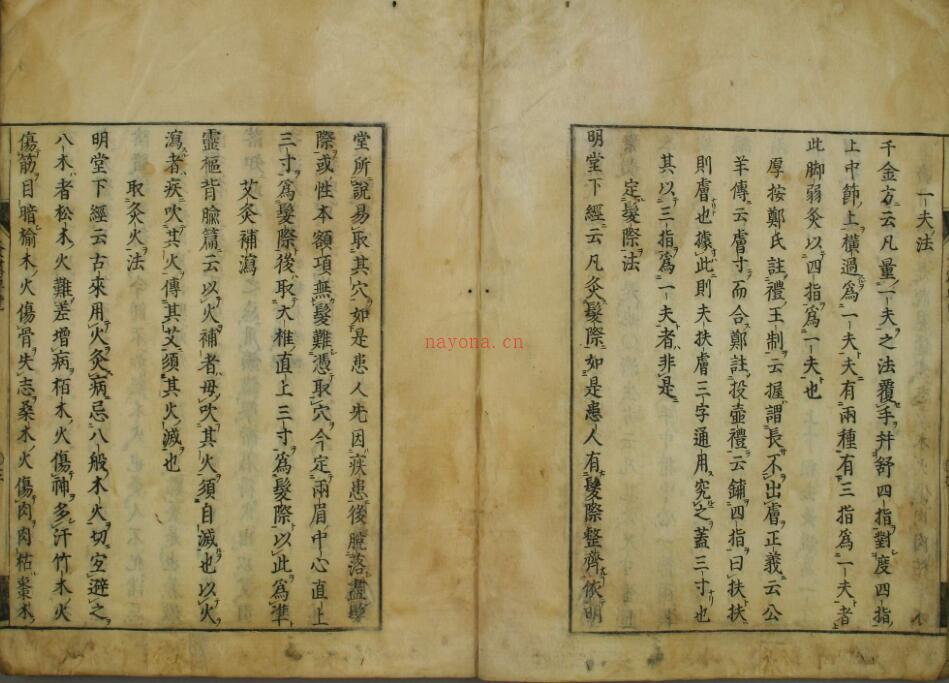 一夫法
千金方云凡量一夫之法覆手并舒四指對度四指
上中節上橫過爲一夫夫有兩種有三指爲一夫者
此脚弱灸以四指爲一夫也
厚按鄭氏註禮王制云握謂長不出膚正義云公
羊傳云膚寸而合鄭註投壺禮云鋪四指曰扶扶
則膚也據此則夫扶膚三字通用究之蓋三寸也
其以三指爲一夫者非是
定髮際法
明堂下經云凡灸髮際如是患人有髮際整齊依明
堂所說易取其穴如是患人先因疾患後脫落盡髮
際或性本額項無髮難憑取穴今定兩眉中心直上
三寸爲髮際後取大椎直上三寸爲髮際以此爲準
艾灸補瀉
靈樞背腧篇云以火補者毋吹其火須自滅也以火
瀉者疾吹其火傳其艾須其火滅也
取灸火法
明堂下經云古來用火灸病忌八般木火切宜避之
八木者松木火難差增病栢木火傷神多汗竹木火
傷筋目暗榆木火傷骨失志桑木火傷肉肉枯棗木
nayona.cn